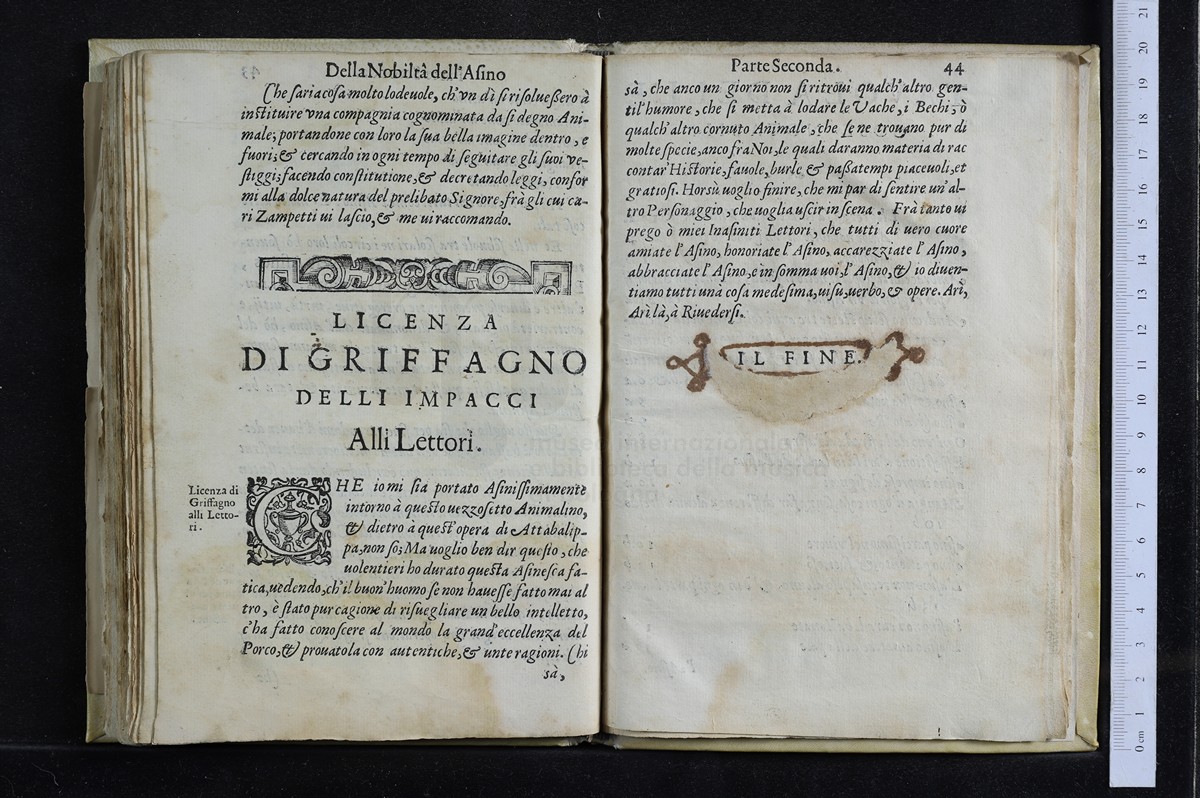 Della Nobiltà dell'Asino
Che saria cosa molto lodeuole, ch'vn dì si risolueßero à
instituire vna compagnia cognominata da sì degno Ani-
male; portandone con loro la sua bella imagine dentro, e
fuori; & cercando in ogni tempo di seguitare gli suoi ve-
stiggi; facendo constitutione, & decretando leggi, confor
mi alla dolce natura del prelibato Signore, frà gli cui ca-
ri Zampetti ui lascio, & me ui raccomando.
LICENZA
DI GRIFFAGNO
DELLI IMPACCI
Alli Lettori.
Licenza di
Griffagno
alli Letto-
ri.
CHE io mi sia portato Asinissimamente
intorno à questo uezzosetto Animalino,
& dietro à quest'opera di Attabalip-
pa, non so; Ma uoglio ben dir questo, che
uolentieri ho durato questa Asinesca fa-
tica, uedendo, ch'il buon'huomo se non hauesse fatto mai al
tro, è stato pur cagione di risuegliare un bello intelletto,
c'ha fatto conoscere al mondo la grand'eccellenza del
Porco, & prouatola con autentiche, & unte ragioni. Chi
sà,
Parte Seconda. 44
sà, che anco un giorno non si ritroui qualch'altro gen-
til'humore, che si metta à lodare le Vache, i Bechi, ò
qualch'altro cornuto Animale, che se ne trouano pur di
molte specie, anco fra Noi, le quali daranno materia di rac
contar' Historie, fauole, burle, & paßatempi piaceuoli, et
gratiosi. Horsù uoglio finire, che mi par di sentire un'al-
tro Personaggio, che uoglia uscir in scena. Frà tanto ui
prego ò miei Inasiniti Lettori, che tutti di uero cuore
amiate l'Asino, honoriate l'Asino, accarezziate l'Asino,
abbracciate l'Asino, e in somma uoi, l'Asino, & io diuen-
tiamo tutti unà cosa medesima, uisu, uerbo, & opere. Arì,
Arì là, à Riuedersi.
IL FINE.
museo internazionale
e biblioteca della musica
0 cm 1 2 3 4 5 6 7 8 9 10 11 12 13 14 15 16 17 18 19 20 21